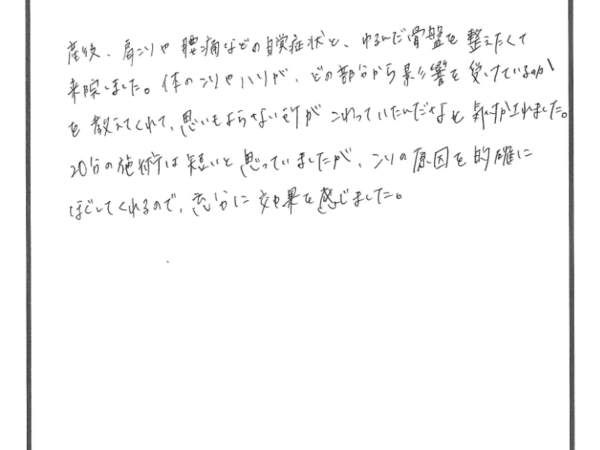 産後、肩こりや腰痛などの自覚症状と、ゆるんだ骨盤を整えたくて
来院しました。体のこりやハリが、どの部分から影響を受けているのか
を教えてくれて、思いもよらない所がこわっていたんだなと気付かされました。
20分の施術は短いと思っていましたが、こりの原因を的確に
ほぐしてくれるので、充分に効果を感じました。